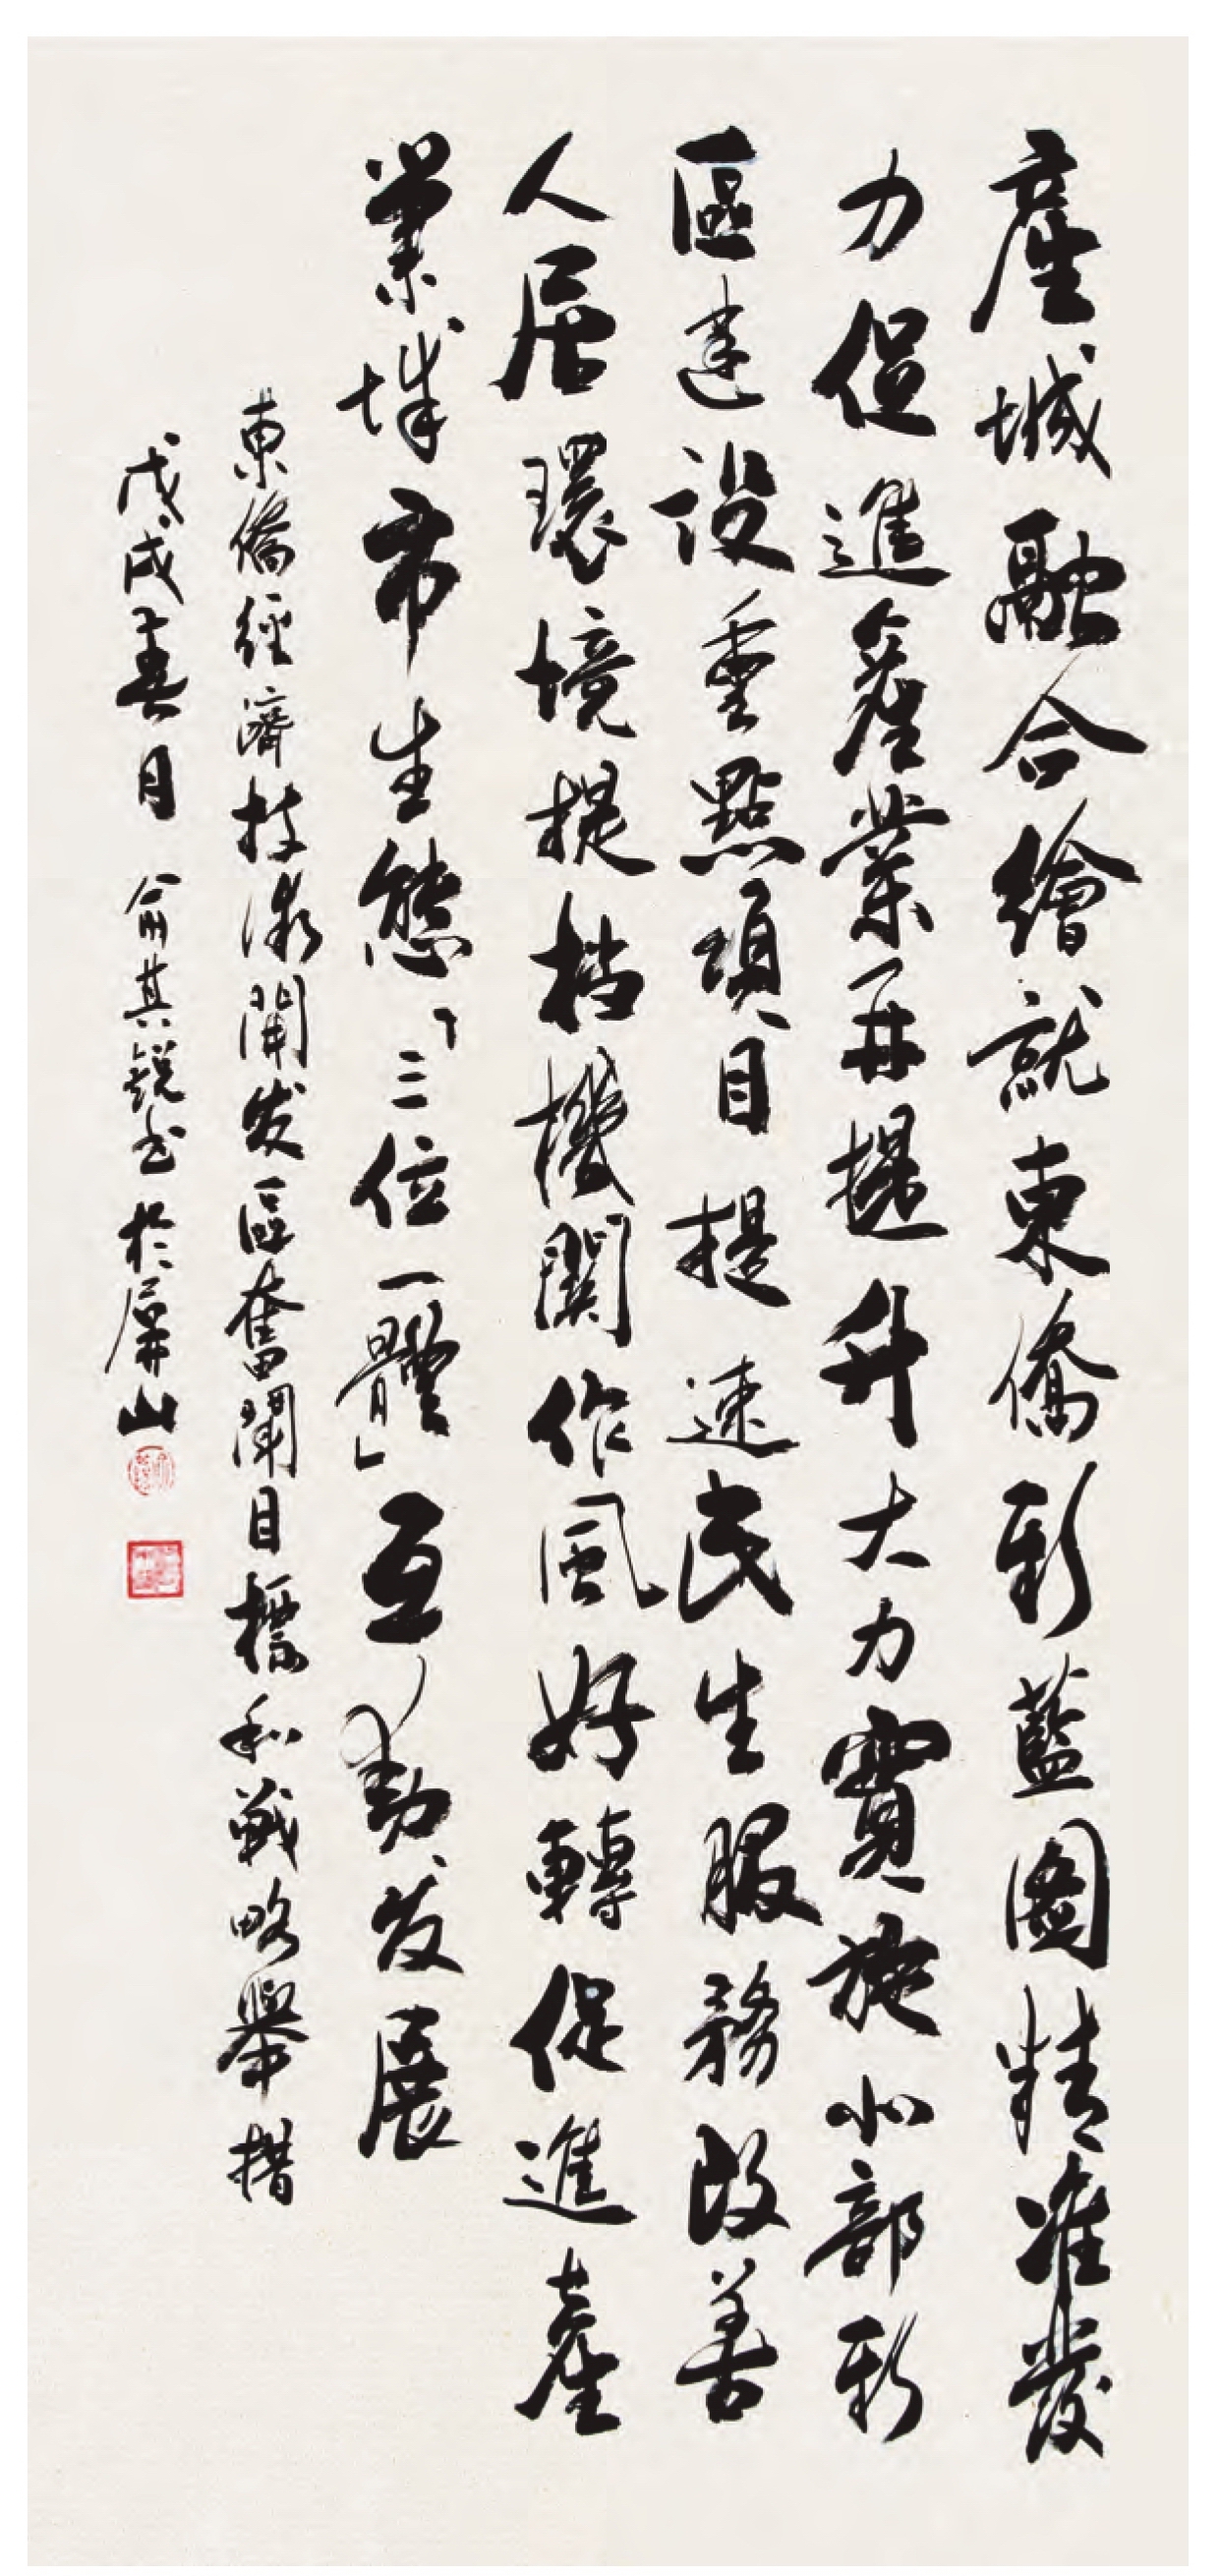 產城融合繪就東僑新藍圖精准發
力促進產業再提升大力實施北部新
區建設重點項目提速民生服務改善
人居環境提檔機關作風好轉促進產
業城市生態「三位一體」互動发展
東僑經濟技術開发區奮鬥目標和戰略舉措
戊戌春月 俞其锐书於屏山